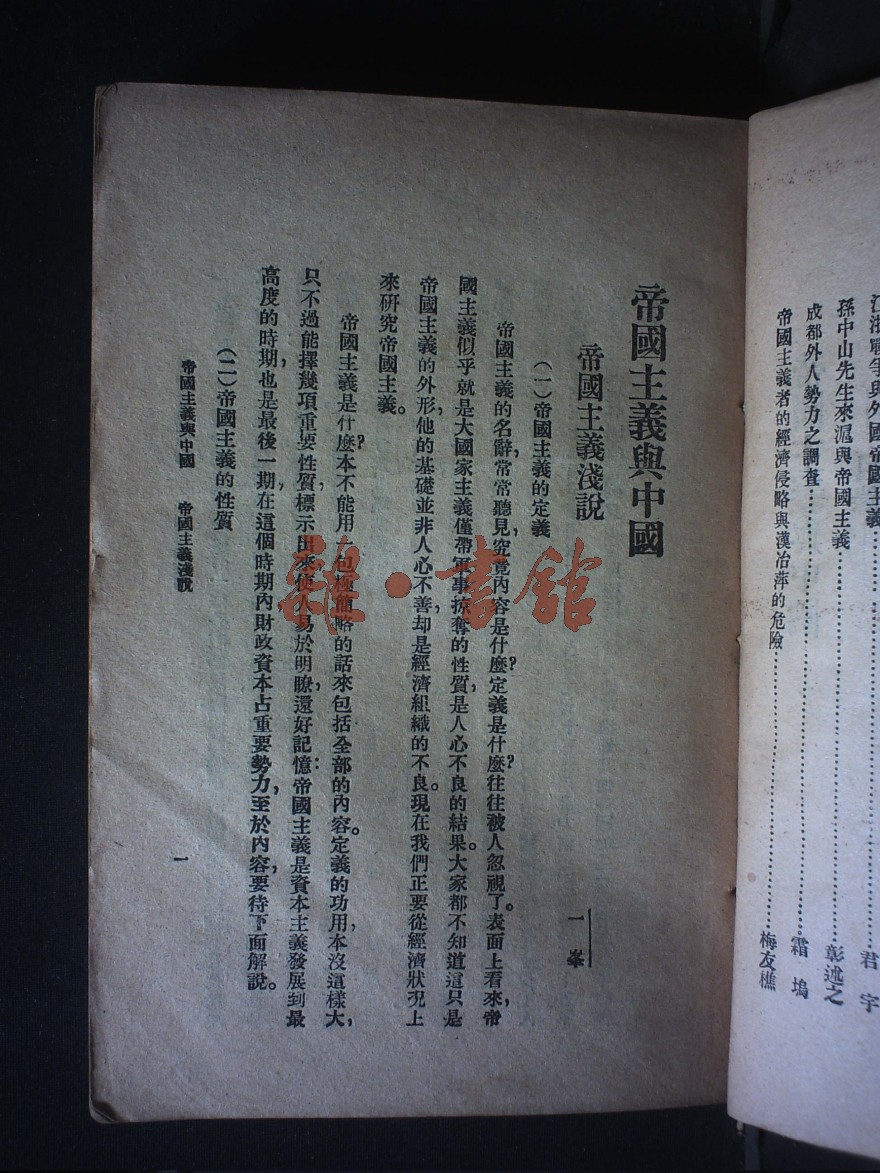 江浙戰爭與外國帝國主義……君　宇
孫中山先生來滬與帝國主義……彰述之
成都外人勢力之調查……霜　塢
帝國主義者的經濟侵略與漢冶萍的危險……梅友樵
帝國主義與中國
帝國主義淺說
一峯
（一）帝國主義的定義
帝國主義的名辭，常常聽見，究竟內容是什麼？定義是什麼？往往被人忽視了。表面上看來，帝
國主義似乎就是大國家主義，僅帶軍事掠奪的性質，是人心不良的結果。大家都不知道這只是
帝國主義的外形，他的基礎並非人心不善，却是經濟組織的不良。現在我們正要從經濟狀況上
來研究帝國主義。
帝國主義是什麼？本不能用一包極簡略的話來包括全部的內容。定義的功用，本沒這樣大，
只不過能擇幾項重要性質，標示出來，使人易於明瞭，還好記憶：帝國主義是資本主義發展到最
高度的時期，也是最後一期，在這個時期內財政資本占重要勢力，至於內容，要待下面解說。
（二）帝國主義的性質
帝國主義與中國　帝國主義淺說
一
雜·書館